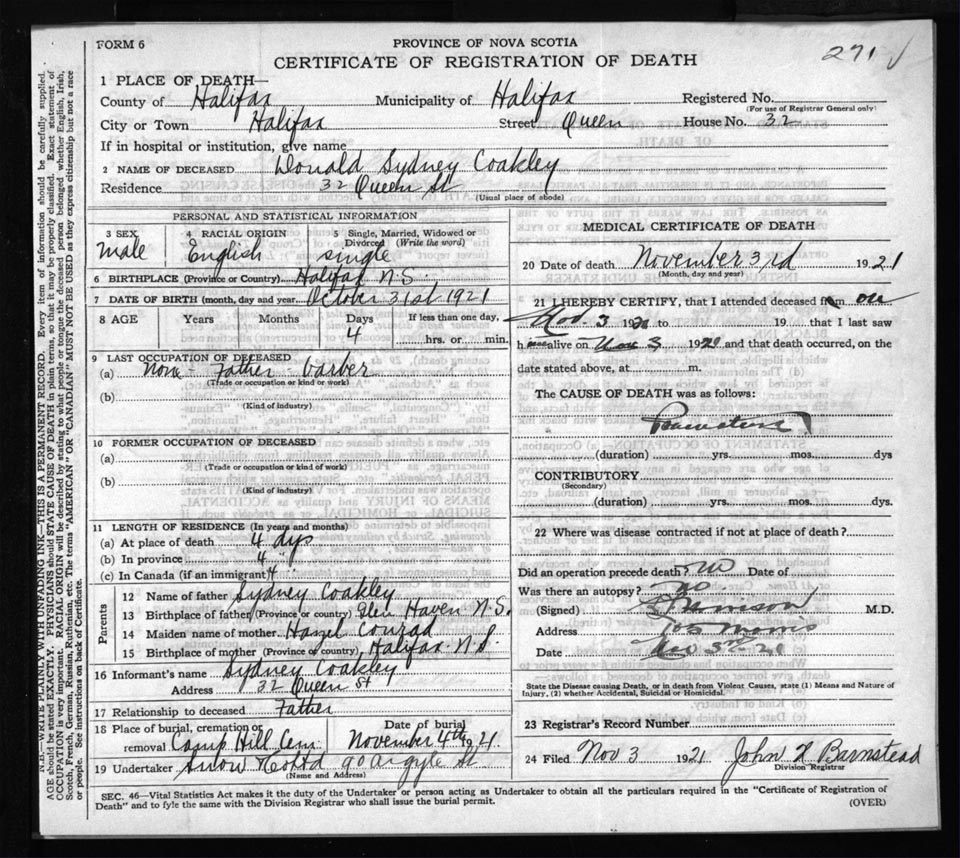 FORM 6
PROVINCE OF NOVA SCOTIA
CERTIFICATE OF REGISTRATION OF DEATH
271 √
1 PLACE OF DEATH—
County of Halifax Municipality of Halifax Registered No.
(For use of Registrar General only)
City or Town Halifax Street Queen House No. 32
If in hospital or institution, give name
2 NAME OF DECEASED Donald Sydney Coakley
Residence 32 Queen St
(Usual place of abode)
PERSONAL AND STATISTICAL INFORMATION
3 SEX male
4 RACIAL ORIGIN English
5 Single, Married, Widowed or Divorced (Write the word) single
6 BIRTHPLACE (Province or Country) Halifax N.S.
7 DATE OF BIRTH (month, day and year October 31st 1921
8 AGE Years Months Days If less than one day,
4 hrs. or min.
9 LAST OCCUPATION OF DECEASED
(a) None - Father - barber
(Trade or occupation or kind or work)
(b)
(Kind of industry)
10 FORMER OCCUPATION OF DECEASED
(a)
(Trade or occupation or kind of work)
(b)
(Kind of industry)
11 LENGTH OF RESIDENCE (In years and months)
(a) At place of death 4 dys
(b) In province 4 "
(c) In Canada (if an immigrant 4
Parents
12 Name of father Sydney Coakley
13 Birthplace of father (Province or country) Glen Haven N.S.
14 Maiden name of mother Hazel Conrad
15 Birthplace of mother (Province or country) Halifax N.S.
16 Informant's name Sydney Coakley
Address 32 Queen St
17 Relationship to deceased Father
18 Place of burial, cremation or removal Camp Hill Cem. Date of burial November 4th 1921.
19 Undertaker Snow & Co Ltd 90 Argyle St
(Name and Address)
MEDICAL CERTIFICATE OF DEATH
20 Date of death November 3rd 1921
(Month, day and year)
21 I HEREBY CERTIFY, that I attended deceased from on
Nov. 3 192 to 19 that I last saw
h alive on Nov 3 192 and that death occurred, on the
date stated above, at m.
The CAUSE OF DEATH was as follows:
(duration) yrs. mos. dys
CONTRIBUTORY
(Secondary)
(duration) yrs. mos. dys.
22 Where was disease contracted if not at place of death?
Did an operation precede death? No Date of
Was there an autopsy? No
(Signed) Morrison M.D.
Address
Date
State the Disease causing Death, or in death from Violent Causes, state (1) Means and Nature of
Injury, (2) whether Accidental, Suicidal or Homicidal.
23 Registrar's Record Number
24 Filed Nov 3 1921 John H Barnstead
Division Registrar
SEC. 46—Vital Statistics Act makes it the duty of the Undertaker or person acting as Undertaker to obtain all the particulars required in the "Certificate of Registration of
Death" and to fyle the same with the Division Registrar who shall issue the burial permit.
(OVER)
N.B.—WRITE PLAINLY WITH UNFADING INK—THIS IS A PERMANENT RECORD. Every item of information should be carefully supplied.
AGE should be stated EXACTLY. PHYSICIANS should STATE CAUSE OF DEATH in plain terms, so that it may be properly classified. Exact statement of
OCCUPATION is very important. RACIAL ORIGIN will be described by stating to what people or tongue the deceased person belonged whether English, Irish,
Scotch, French, German, Russian, Ruthenian, etc. The terms "AMERICAN" OR "CANADIAN" MUST NOT BE USED as they express citizenship but not a race
or people. See instructions on back of Certificate.